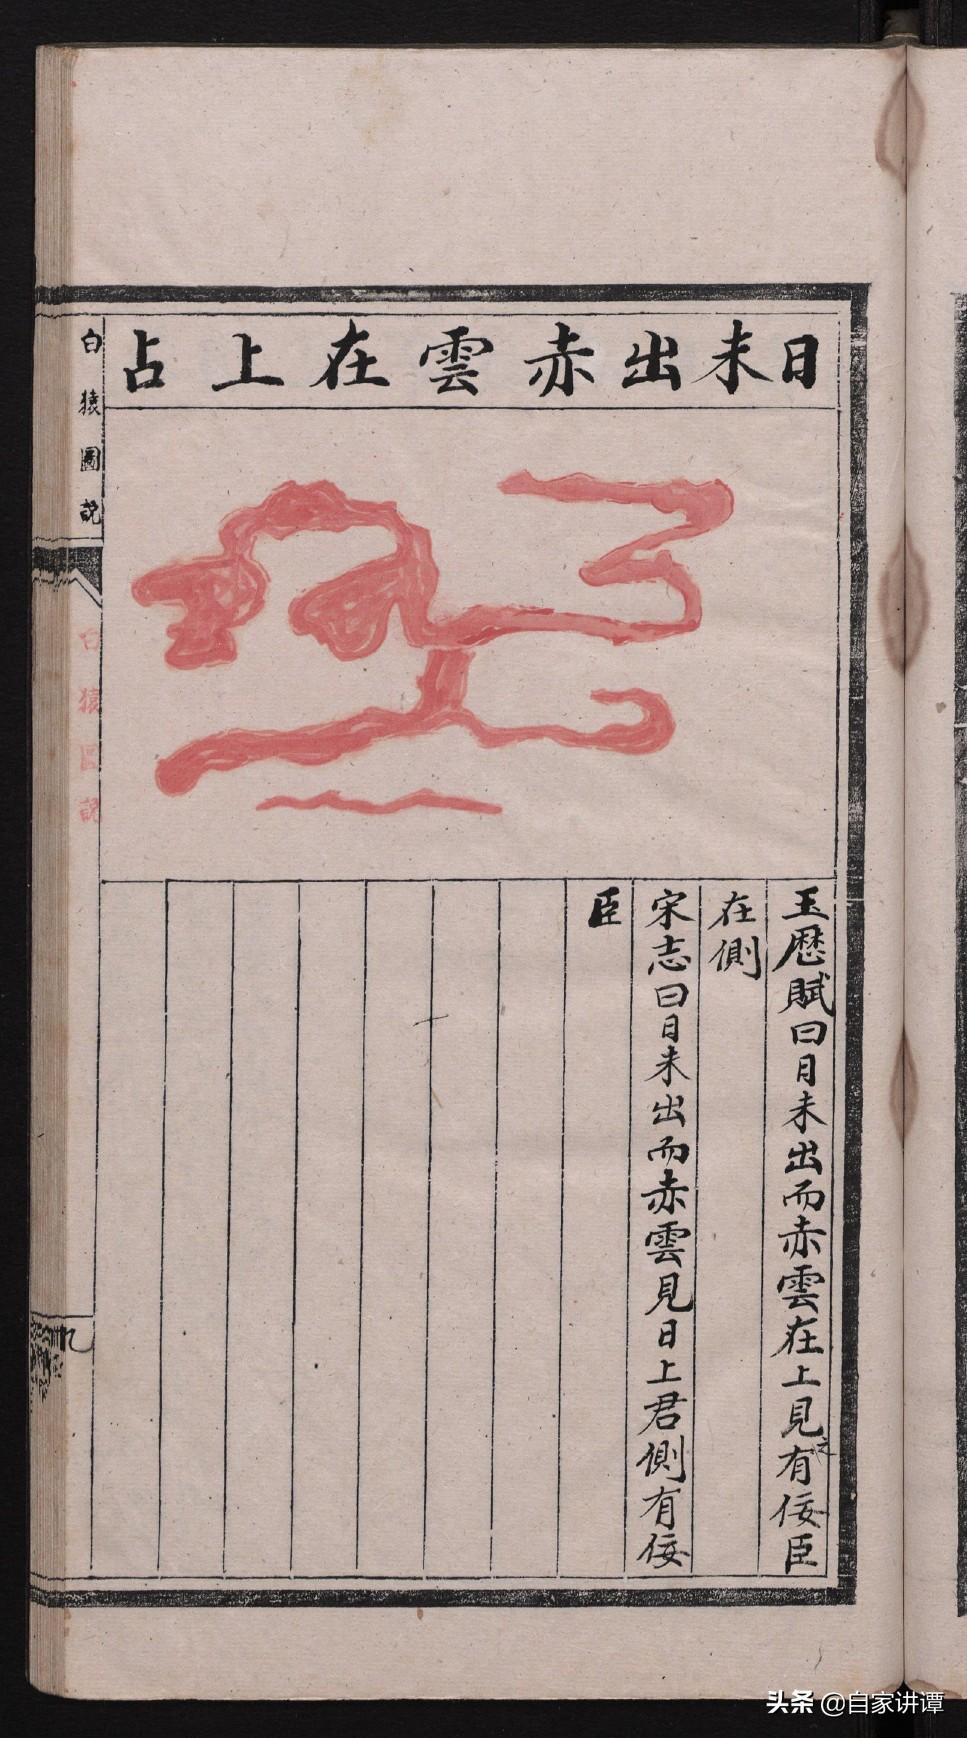 日未出赤雲在上占
玉歴賦曰日未出而赤雲在上見之有佞臣
在側
宋志曰日未出而赤雲見日上君側有佞
臣
白猿圖說
白猿圖說
九
头条 @自家讲谭